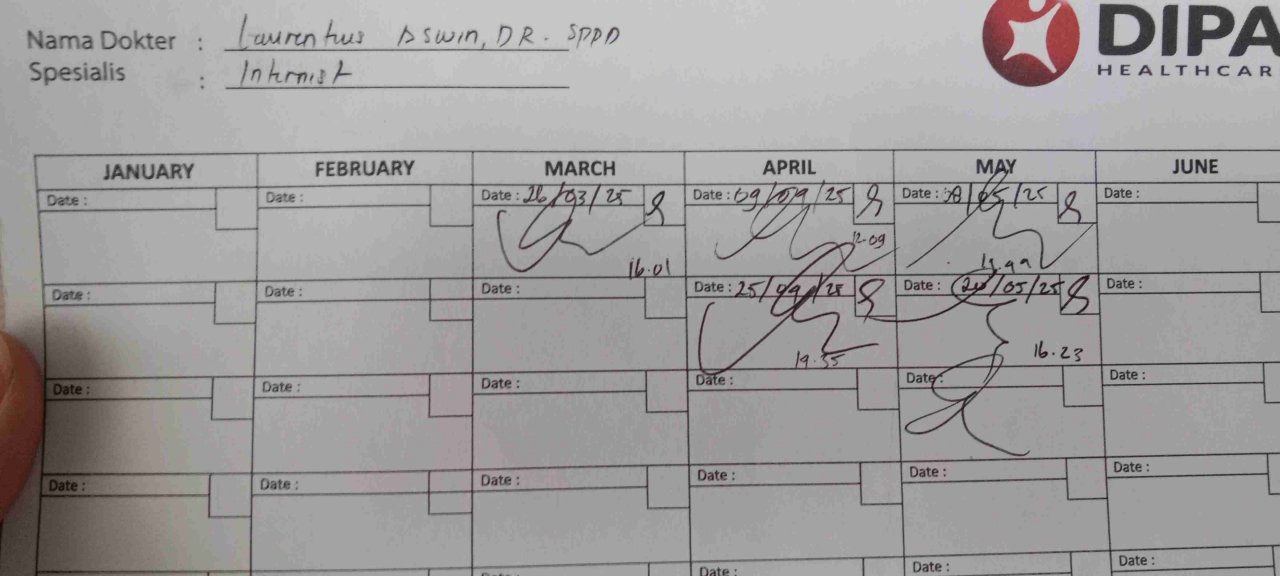 Nama Dokter : Laurentius Aswin, DR. SPPD
Spesialis : Internist
DIPA
HEALTHCAR
JANUARY FEBRUARY MARCH APRIL MAY JUNE
Date : Date : Date : 26/03/25 Date : 09/04/25 Date : /05/25 Date :
16.01 12.09
Date : Date : Date : Date : 25/04/25 Date : 20/05/25 Date :
19.35 16.23
Date : Date : Date : Date : Date : Date :
Date : Date : Date : Date : Date : Date :
Date : Date : Date : Date :